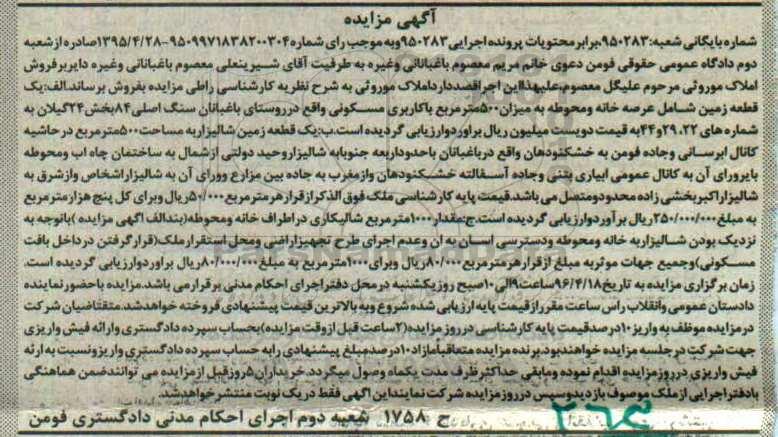 آگهی مزایده
شماره بایگانی شعبه:۹۵۰۲۸۳،برابر محتویات پرونده اجرایی۹۵۰۲۸۳وبه موجب رای شماره۹۵۰۹۹۷۱۸۳۸۲۰۰۳۰۴-۱۳۹۵/۴/۲۸صادره از شعبه
دوم دادگاه عمومی حقوقی فومن دعوی خانم مریم معصوم باغبانانی وغیره به طرفیت آقای شیرینعلی معصوم باغبانانی وغیره دایر برفروش
املاک موروثی مرحوم علیگل معصوم،علیهذا این اجراقصددارداملاک موروثی به شرح نظریه کارشناسی راطی مزایده بفروش برساند.الف:یک
قطعه زمین شامل عرصه خانه ومحوطه به میزان۵۰۰مترمربع باکاربری مسکونی واقع درروستای باغبانان سنگ اصلی۸۴بخش۲۴گیلان به
شماره های ۲۹،۲۲و۴۴به قیمت دویست میلیون ریال برآوردوارزیابی گردیده است.ب:یک قطعه زمین شالیزاربه مساحت۵۰۰۰مترمربع درحاشیه
کانال ابرسانی وجاده فومن به خشکنودهان واقع درباغبانان باحدوداربعه جنوبابه شالیزاروحید دولتی ازشمال به ساختمان چاه اب ومحوطه
بایرورای آن به کانال عمومی ابیاری بتنی وجاده آسفالته خشکنودهان وازمغرب به جاده بین مزارع وورای آن به شالیزاراشخاص وازشرق به
شالیزاراکبربخشی زاده محدودومتصل می باشد.قیمت پایه کارشناسی ملک فوق الذکرازقرارهرمترمربع ۵۰/۰۰۰ریال وبرای کل پنج هزارمترمربع
به مبلغ۲۵۰/۰۰۰/۰۰۰ریال برآوردوارزیابی گردیده است.ج:مقدار۱۰۰۰مترمربع شالیکاری دراطراف خانه ومحوطه(بندالف اگهی مزایده )باتوجه به
نزدیک بودن شالیزاربه خانه ومحوطه ودسترسی اسان به ان وعدم اجرای طرح تجهیزاراضی ومحل استقرارملک(قرارگرفتن درداخل بافت
مسکونی)وجمیع جهات موثربه مبلغ ازقرارهرمترمربع۸۰/۰۰۰ریال وبرای۱۰۰۰مترمربع به مبلغ۸۰/۰۰۰/۰۰۰ریال برآوردوارزیابی گردیده است.
زمان برگزاری مزایده به تاریخ۹۶/۴/۱۸ساعت۹الی۱۰صبح روزیکشنبه درمحل دفتراجرای احکام مدنی برقرارمی باشد.مزایده باحضورنماینده
دادستان عمومی وانقلاب راس ساعت مقررازقیمت پایه ارزیابی شده شروع وبه بالاترین قیمت پیشنهادی فروخته خواهدشد.متقاضیان شرکت
درمزایده موظف به واریز۱۰درصدقیمت پایه کارشناسی درروزمزایده(۲ساعت قبل ازوقت مزایده)بحساب سپرده دادگستری وارائه فیش واریزی
جهت شرکت درجلسه مزایده خواهندبود.برنده مزایده متعاقباًمازاد۱۰درصدمبلغ پیشنهادی رابه حساب سپرده دادگستری واریزونسبت به ارئه
فیش واریزی درروزمزایده اقدام نموده ومابقی حداکثرظرف مدت یکماه وصول میگردد.خریداران۵روزقبل ازمزایده می توانندضمن هماهنگی
بادفتراجرایی ازملک موصوف بازدیدوسپس درروزمزایده شرکت نمایند.این اگهی فقط دریک نوبت منتشرخواهدشد.
ح ۱۷۵۸ شعبه دوم اجرای احکام مدنی دادگستری فومن